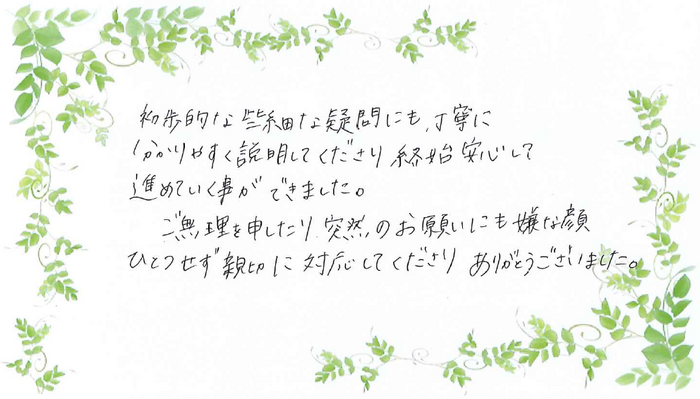 初歩的な些細な疑問にも、丁寧に
分かりやすく説明してくださり 終始安心して
進めていく事ができました。
ご無理を申したり、突然のお願いにも嫌な顔
ひとつせず親切に対応してくださり ありがとうございました。